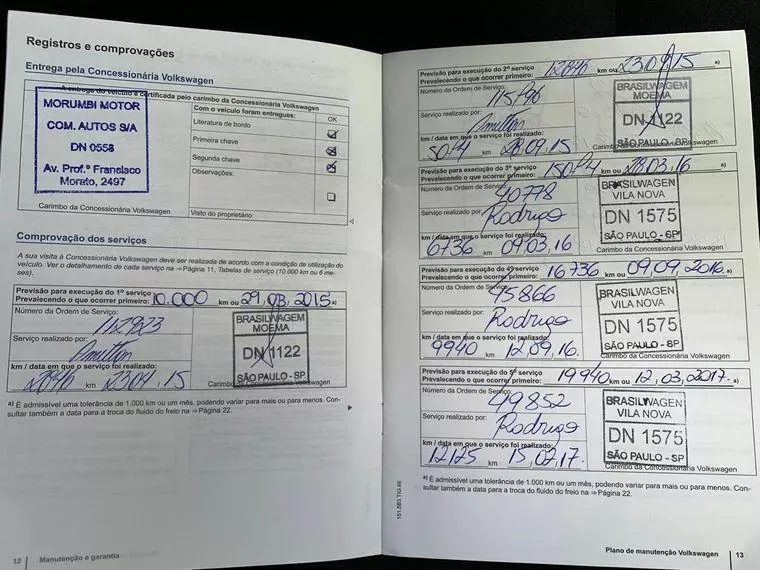 Registros e comprovações
Entrega pela Concessionária Volkswagen
A entrega do veículo é certificada pelo carimbo da Concessionária Volkswagen
MORUMBI MOTOR
COM. AUTOS S/A
DN 0558
Av. Prof.º Francisco
Morato, 2497
Carimbo da Concessionária Volkswagen
Com o veículo foram entregues: OK
Literatura de bordo
Primeira chave
Segunda chave
Observações:
Visto do proprietário:
Comprovação dos serviços
A sua visita à Concessionária Volkswagen deve ser realizada de acordo com a condição de utilização do
veículo. Ver o detalhamento de cada serviço na ⇒ Página 11, Tabelas de serviço (10.000 km ou 6 me-
ses).
Previsão para execução do 1º serviço
Prevalecendo o que ocorrer primeiro: 10.000 km ou 29,03,2015 a)
Número da Ordem de Serviço:
112823
Serviço realizado por:
Amilton
km / data em que o serviço foi realizado:
km 23 04 15
BRASILWAGEM
MOEMA
DN 1122
SÃO PAULO - SP
Carimbo da Concessionária Volkswagen
a) É admissível uma tolerância de 1.000 km ou um mês, podendo variar para mais ou para menos. Con-
sultar também a data para a troca do fluido do freio na ⇒ Página 22.
12 Manutenção e garantia
Previsão para execução do 2º serviço
Prevalecendo o que ocorrer primeiro: km ou 23.09.15 a)
Número da Ordem de Serviço:
115796
Serviço realizado por:
Amilton
km / data em que o serviço foi realizado:
5074 km 28.09.15
BRASILWAGEM
MOEMA
DN 1122
SÃO PAULO - SP
Carimbo da Concessionária Volkswagen
Previsão para execução do 3º serviço
Prevalecendo o que ocorrer primeiro: 15074 km ou 28.03.16 a)
Número da Ordem de Serviço:
40778
Serviço realizado por:
Rodrigo
km / data em que o serviço foi realizado:
6736 km 09.03.16
BRASILWAGEN
VILA NOVA
DN 1575
SÃO PAULO - SP
Carimbo da Concessionária Volkswagen
Previsão para execução do 4º serviço
Prevalecendo o que ocorrer primeiro: 16736 km ou 09,09,2016 a)
Número da Ordem de Serviço:
45866
Serviço realizado por:
Rodrigo
km / data em que o serviço foi realizado:
9940 km 12.09.16.
BRASILWAGEN
VILA NOVA
DN 1575
SÃO PAULO - SP
Carimbo da Concessionária Volkswagen
Previsão para execução do 5º serviço
Prevalecendo o que ocorrer primeiro: 19940 km ou 12,03,2017. a)
Número da Ordem de Serviço:
49852
Serviço realizado por:
Rodrigo
km / data em que o serviço foi realizado:
12175 km 15,02,17.
BRASILWAGEN
VILA NOVA
DN 1575
SÃO PAULO - SP
Carimbo da Concessionária Volkswagen
a) É admissível uma tolerância de 1.000 km ou um mês, podendo variar para mais ou para menos. Con-
sultar também a data para a troca do fluido do freio na ⇒ Página 22.
151.5B3.TIG.66
Plano de manutenção Volkswagen 13